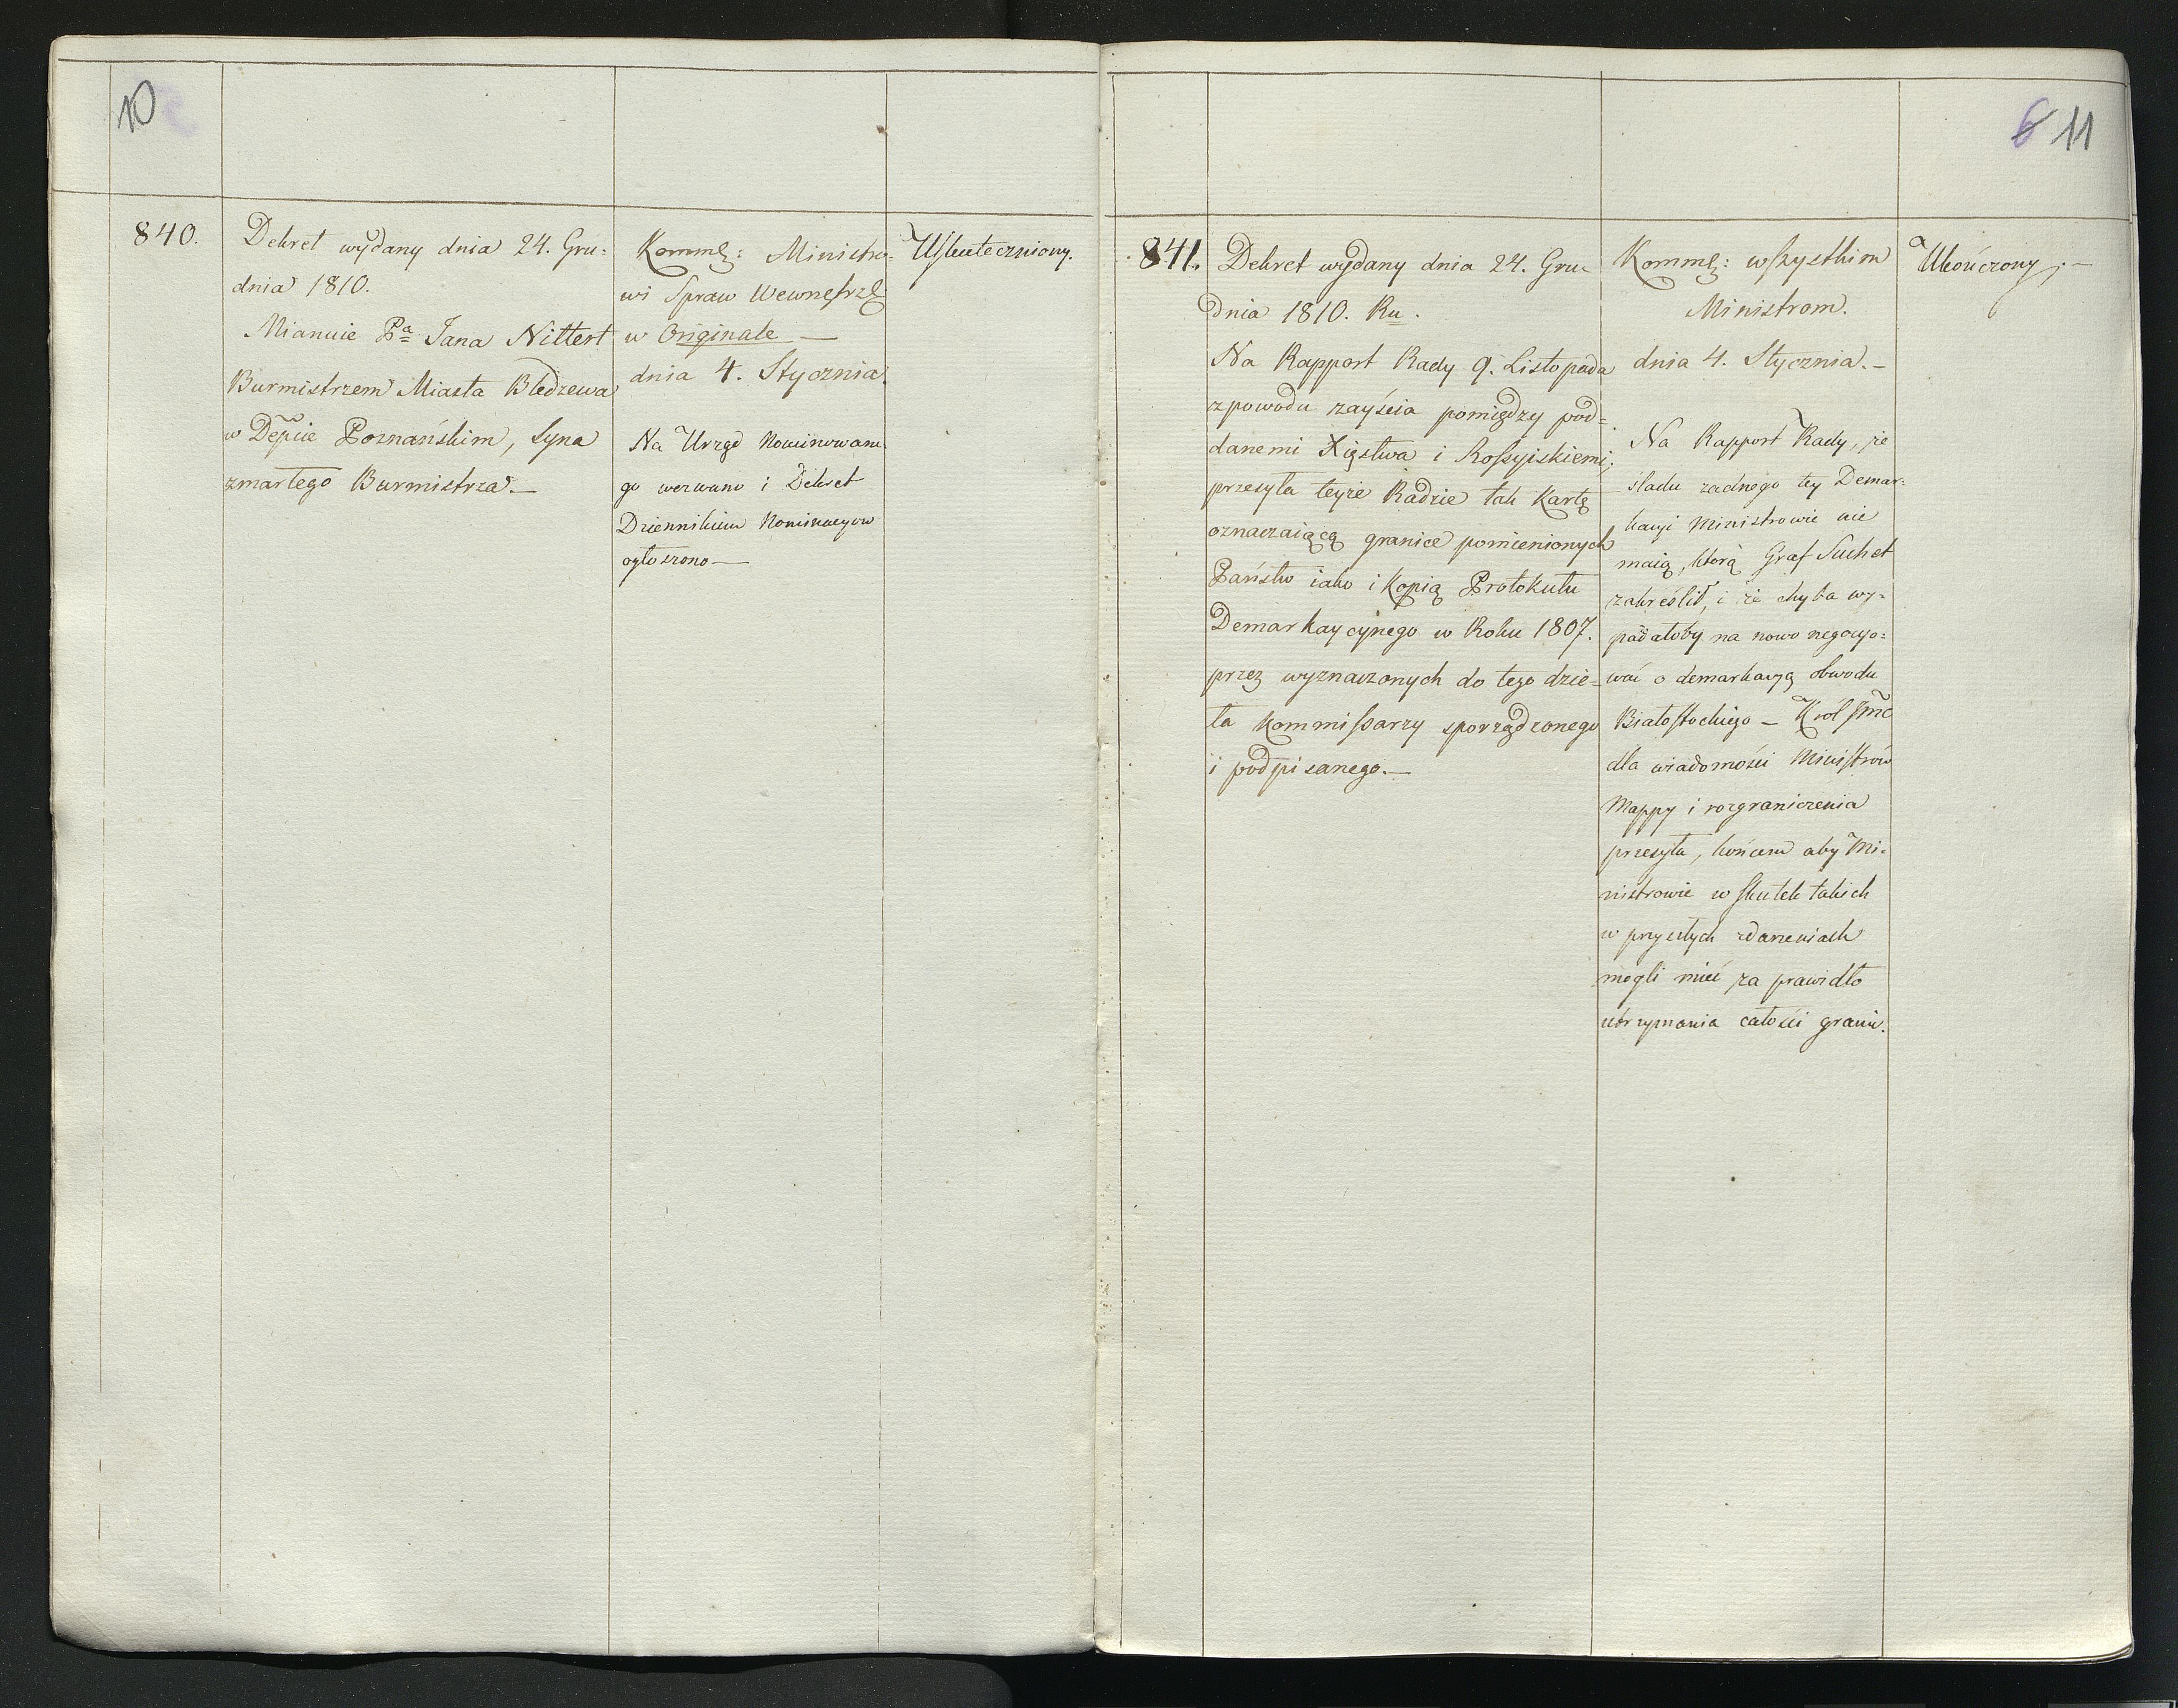 10
840.
Dekret wydany dnia 24. Gru=
dnia 1810.
Mianuie Pa Jana Nittert
Burmistrzem Miasta Bledzewa
w Depcie Poznańskim, Syna
zmarłego Burmistrza.—
Kommk: Ministro=
wi Spraw Wewnętrz:
w Originale —
dnia 4. Stycznia.
Na Urząd Nominowane
go wezwano i Dekret
Dziennikiem Nominacyow
ogłoszono —
Uskuteczniony.
6 11
841.
Dekret wydany dnia 24. Gru=
dnia 1810. Ru.
Na Rapport Rady 9. Listopada
z powodu zayścia pomiędzy pod=
danemi Xięstwa i Rossyiskiemi;
przesyła teyże Radzie tak Kartę
oznaczaiącą granice pomienionych
Państw iako i Kopią Protokułu
Demarkaycynego w Roku 1807.
przez wyznaczonych do tego dzie=
ła Kommissarzy sporządzonego
i podpisanego.—
Kommk: wszystkim
Ministrom.
dnia 4. Stycznia.—
Na Rapport Rady, że
śladu żadnego tey Demar=
kacyi Ministrowie nie
maią, którą Graf Suchet
zakreślił, i że chyba wy=
padałoby na nowo negocyo=
wać o demarkacyą obwodu
Białostockiego — Król Jmć
dla wiadomości Ministrów
Mappy i rozgraniczenia
przesyła, końcem aby Mi=
nistrowie w skutek takich
w przyszłych zdarzeniach
mogli mieć za prawidło
utrzymania całości granic.
Ukończony.—